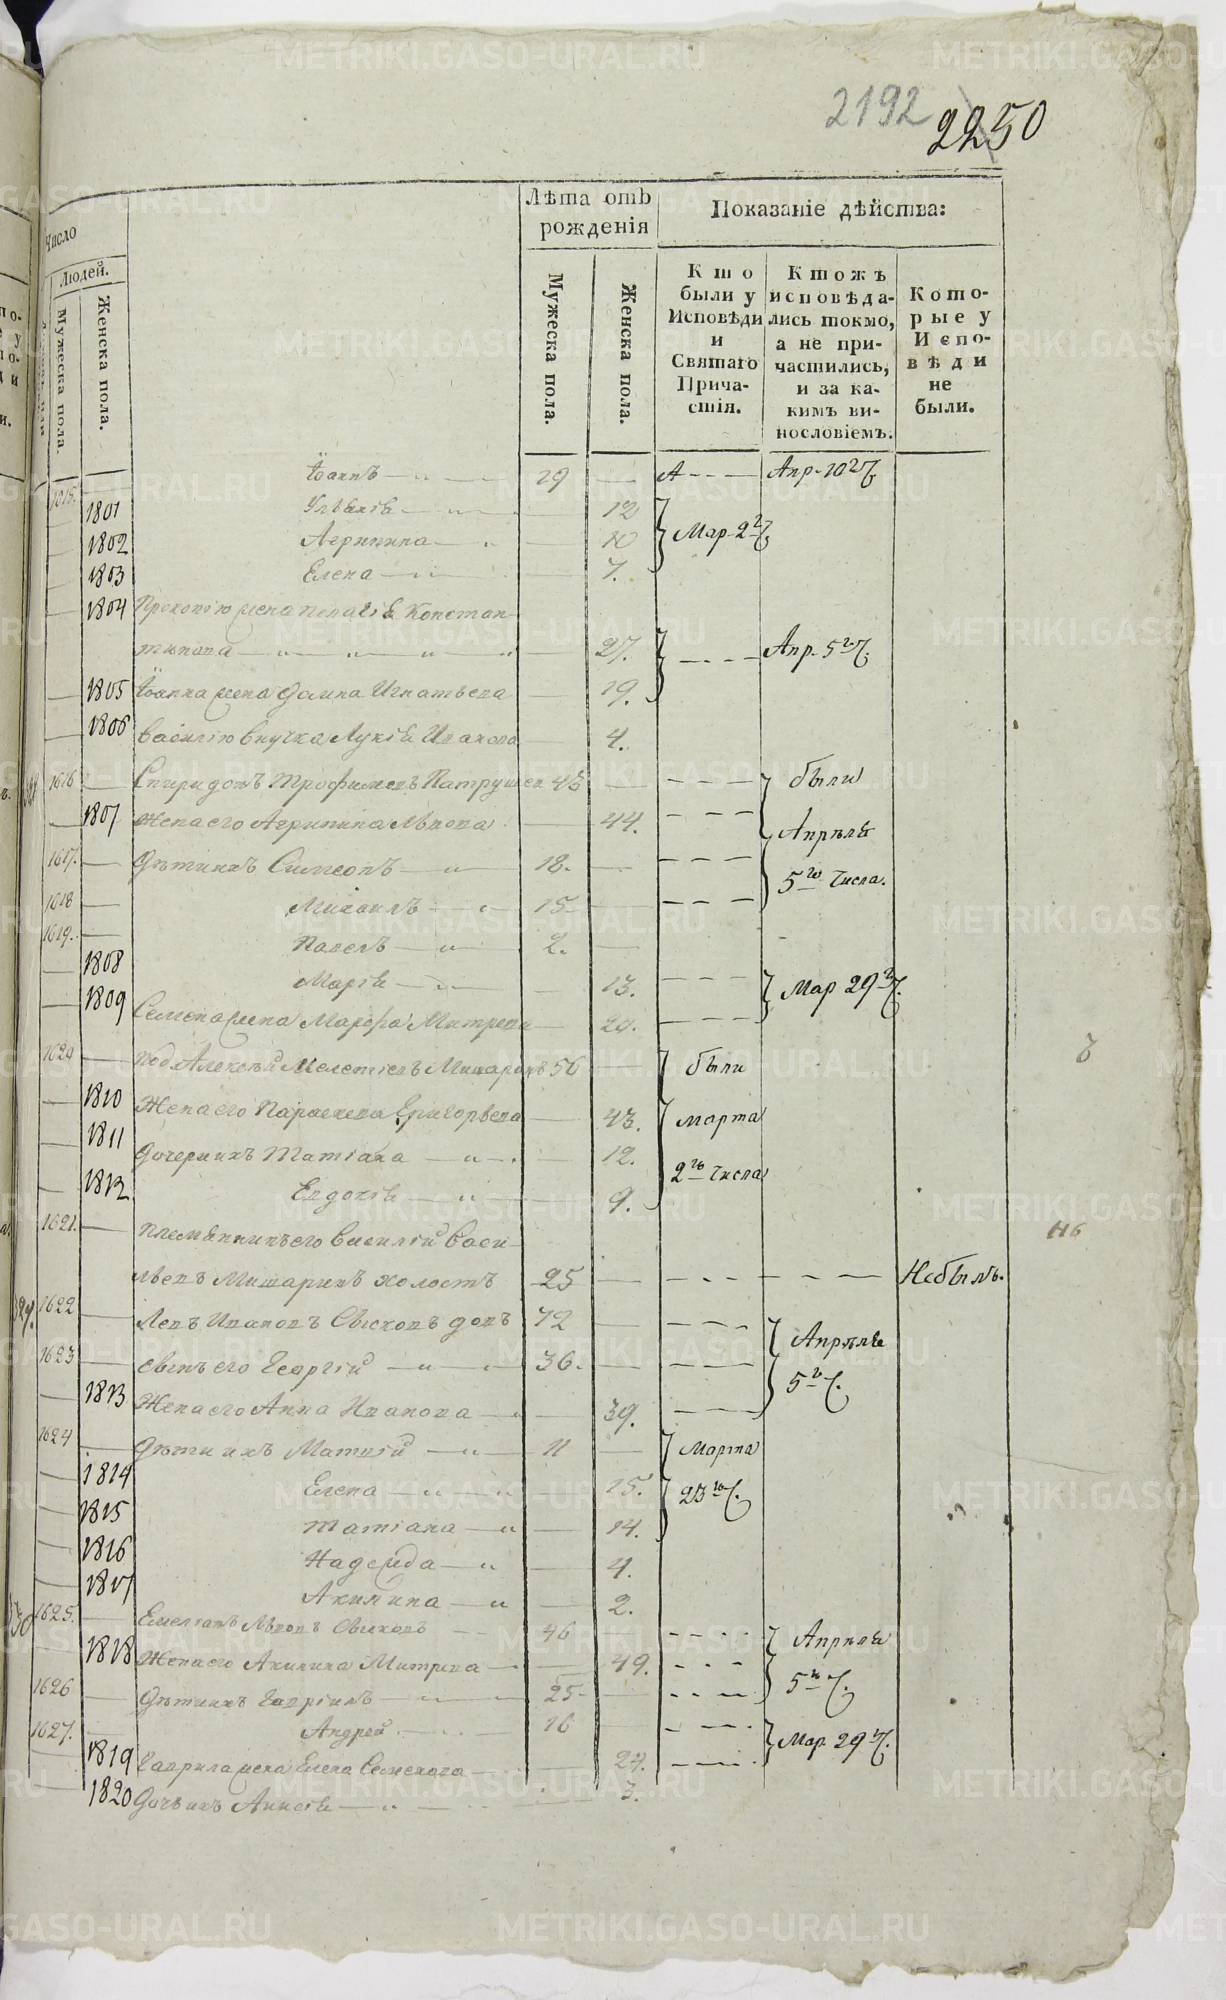 2192 2250
Число
Людей.
Мужеска пола.
Женска пола.
Лѣта отъ рожденія
Мужеска пола.
Женска пола.
Показаніе дѣйства:
Кто были у Исповѣди и Святаго Причастія.
Ктожъ исповѣдались токмо, а не причастились, и за какимъ винословіемъ.
Которые у Исповѣди не были.
1615. Іоаннъ 19 Апр. 10 го Ч.
1801 12
1802 Агрипина 10 Мар. 2 го Ч.
1803 Елена 7.
1804 Прокопію жена Пелагіѣ Констан-
тинова 27. Апр. 5 го Ч.
1805 Іоанна жена Игнатьева 19.
1806 Василію внучка Лукіѣ Иванова 4.
1616 Спиридонъ Трофимовъ Патрушев 43 были
1807 Жена его Агрипина Львова 44. Апрѣлѣ
1617. Дѣти ихъ Симеонъ 18. 5 го числа.
1618 Михаилъ 15
1619. Павелъ 2.
1808 Маріѣ 13. Мар 29 го Ч.
1809 Семена жена Марфа Митрева
1620 Алексѣй Мелетіевъ Мишаринъ 50 были
1810 Жена его Параскева Григорьева 43. марта
1811 Дочери ихъ Татіана 12. 2 го числа
1812 Евдокіѣ 9.
1621. Племянникъ его Василій Васи-
льевъ Мишаринъ холостъ 25 Небылъ.
1622 Левъ Ивановъ вдовъ 72 Апрѣлѣ
1623 сынъ его Георгій 36. 5 го Ч.
1813 Жена его Анна Иванова 39.
1624 Дѣти ихъ 11 Марта
1814 Елена 15. 23 го Ч.
1815 Татіана 14.
1816 Надежда 4.
1817 Акилина 2.
1625. Емеліанъ Львовъ 46 Апрѣлѣ
1818 Жена его Акилина Митрева 49. 5 го Ч.
1626 Дѣти ихъ Гавріилъ 25
1627. Андрей 16 Мар. 29 го Ч.
1819 Гаврила жена Елена Семенова
1820 Дочь ихъ 3.
METRIKI.GASO-URAL.RU